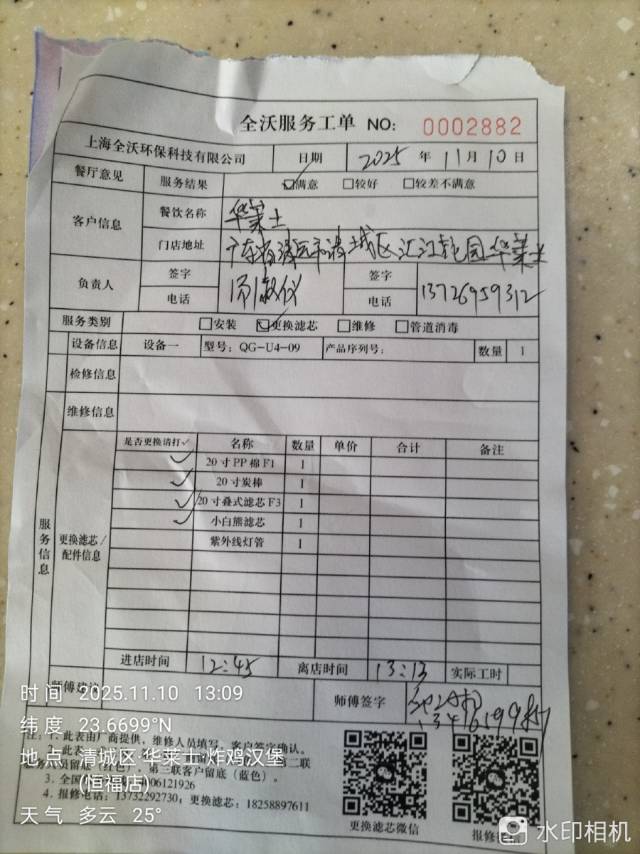 全沃服务工单 NO: 0002882
上海全沃环保科技有限公司 日期 2025 年 11 月 10 日
餐厅意见 服务结果 ☑满意 □较好 □较差不满意
客户信息 餐饮名称 华莱士
门店地址 广东省清远市清城区汇江花园华莱士
负责人 签字 签字
电话 电话 13726959312
服务类别 □安装 ☑更换滤芯 □维修 □管道消毒
设备信息 设备一 型号: QG-U4-09 产品序列号: 数量 1
检修信息
维修信息
服务信息 更换滤芯/配件信息
是否更换请打✓ 名称 数量 单价 合计 备注
✓ 20寸PP棉F1 1
✓ 20寸炭棒 1
✓ 20寸叠式滤芯F3 1
✓ 小白熊滤芯 1
紫外线灯管 1
进店时间 12:45 离店时间 13:13 实际工时
师傅建议 师傅签字
注: 1. 此表由厂商提供, 维修人员填写, 客户签确认。
2. 此表
第三联客户留底 (蓝色)。
3. 全国 4006121926
4. 报修电话: 13732292730; 更换滤芯: 18258897611
更换滤芯微信
报修
时间 2025.11.10 13:09
纬度 23.6699°N
地点 清城区·华莱士·炸鸡汉堡
(恒福店)
天气 多云 25°
水印相机